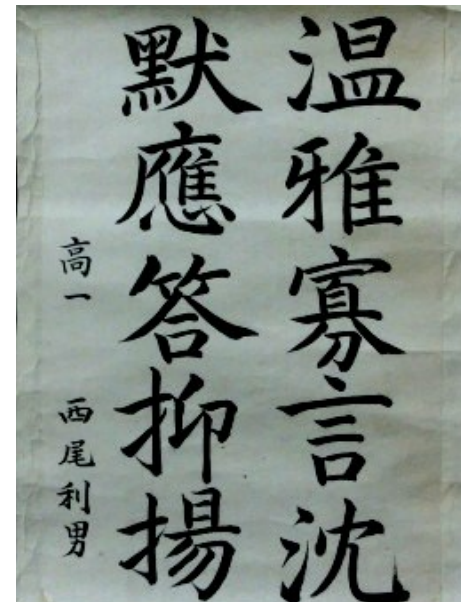 温雅寡言沈
默應答抑揚
高一 西尾利男